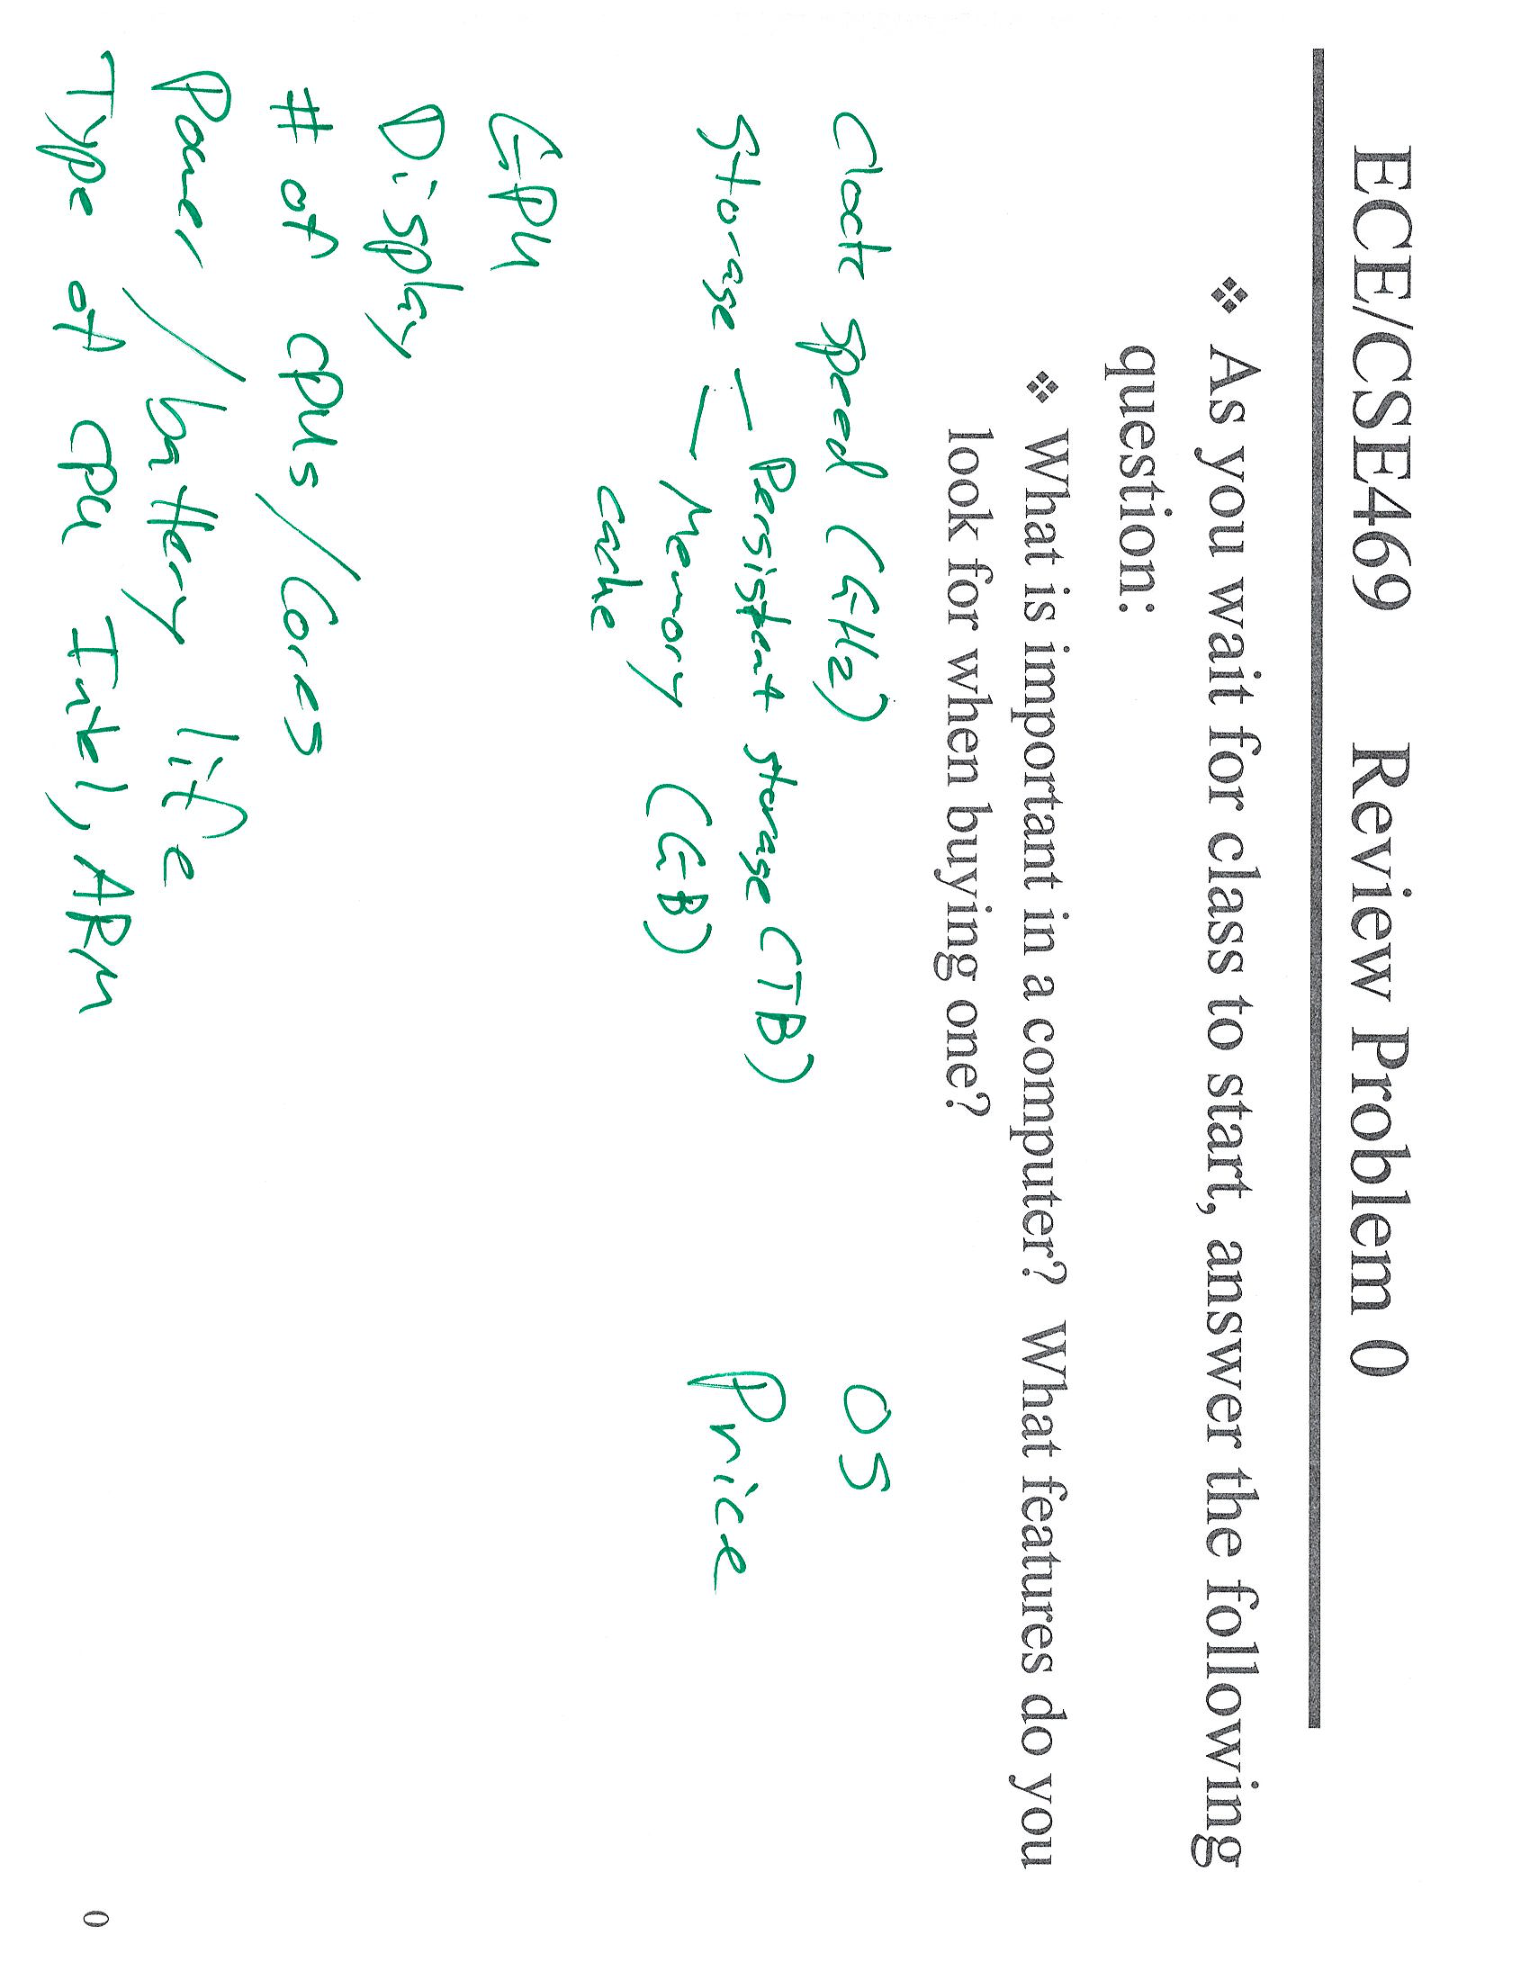 ECE/CSE469 Review Problem 0
❖ As you wait for class to start, answer the following
question:
❖ What is important in a computer? What features do you
look for when buying one?
Clock speed (GHz)
Storage
Persistent storage (TB)
Memory (GB)
cache
GPU
Display
# of CPUs / Cores
Power / battery life
Type of CPU Intel, ARM
OS
Price
0